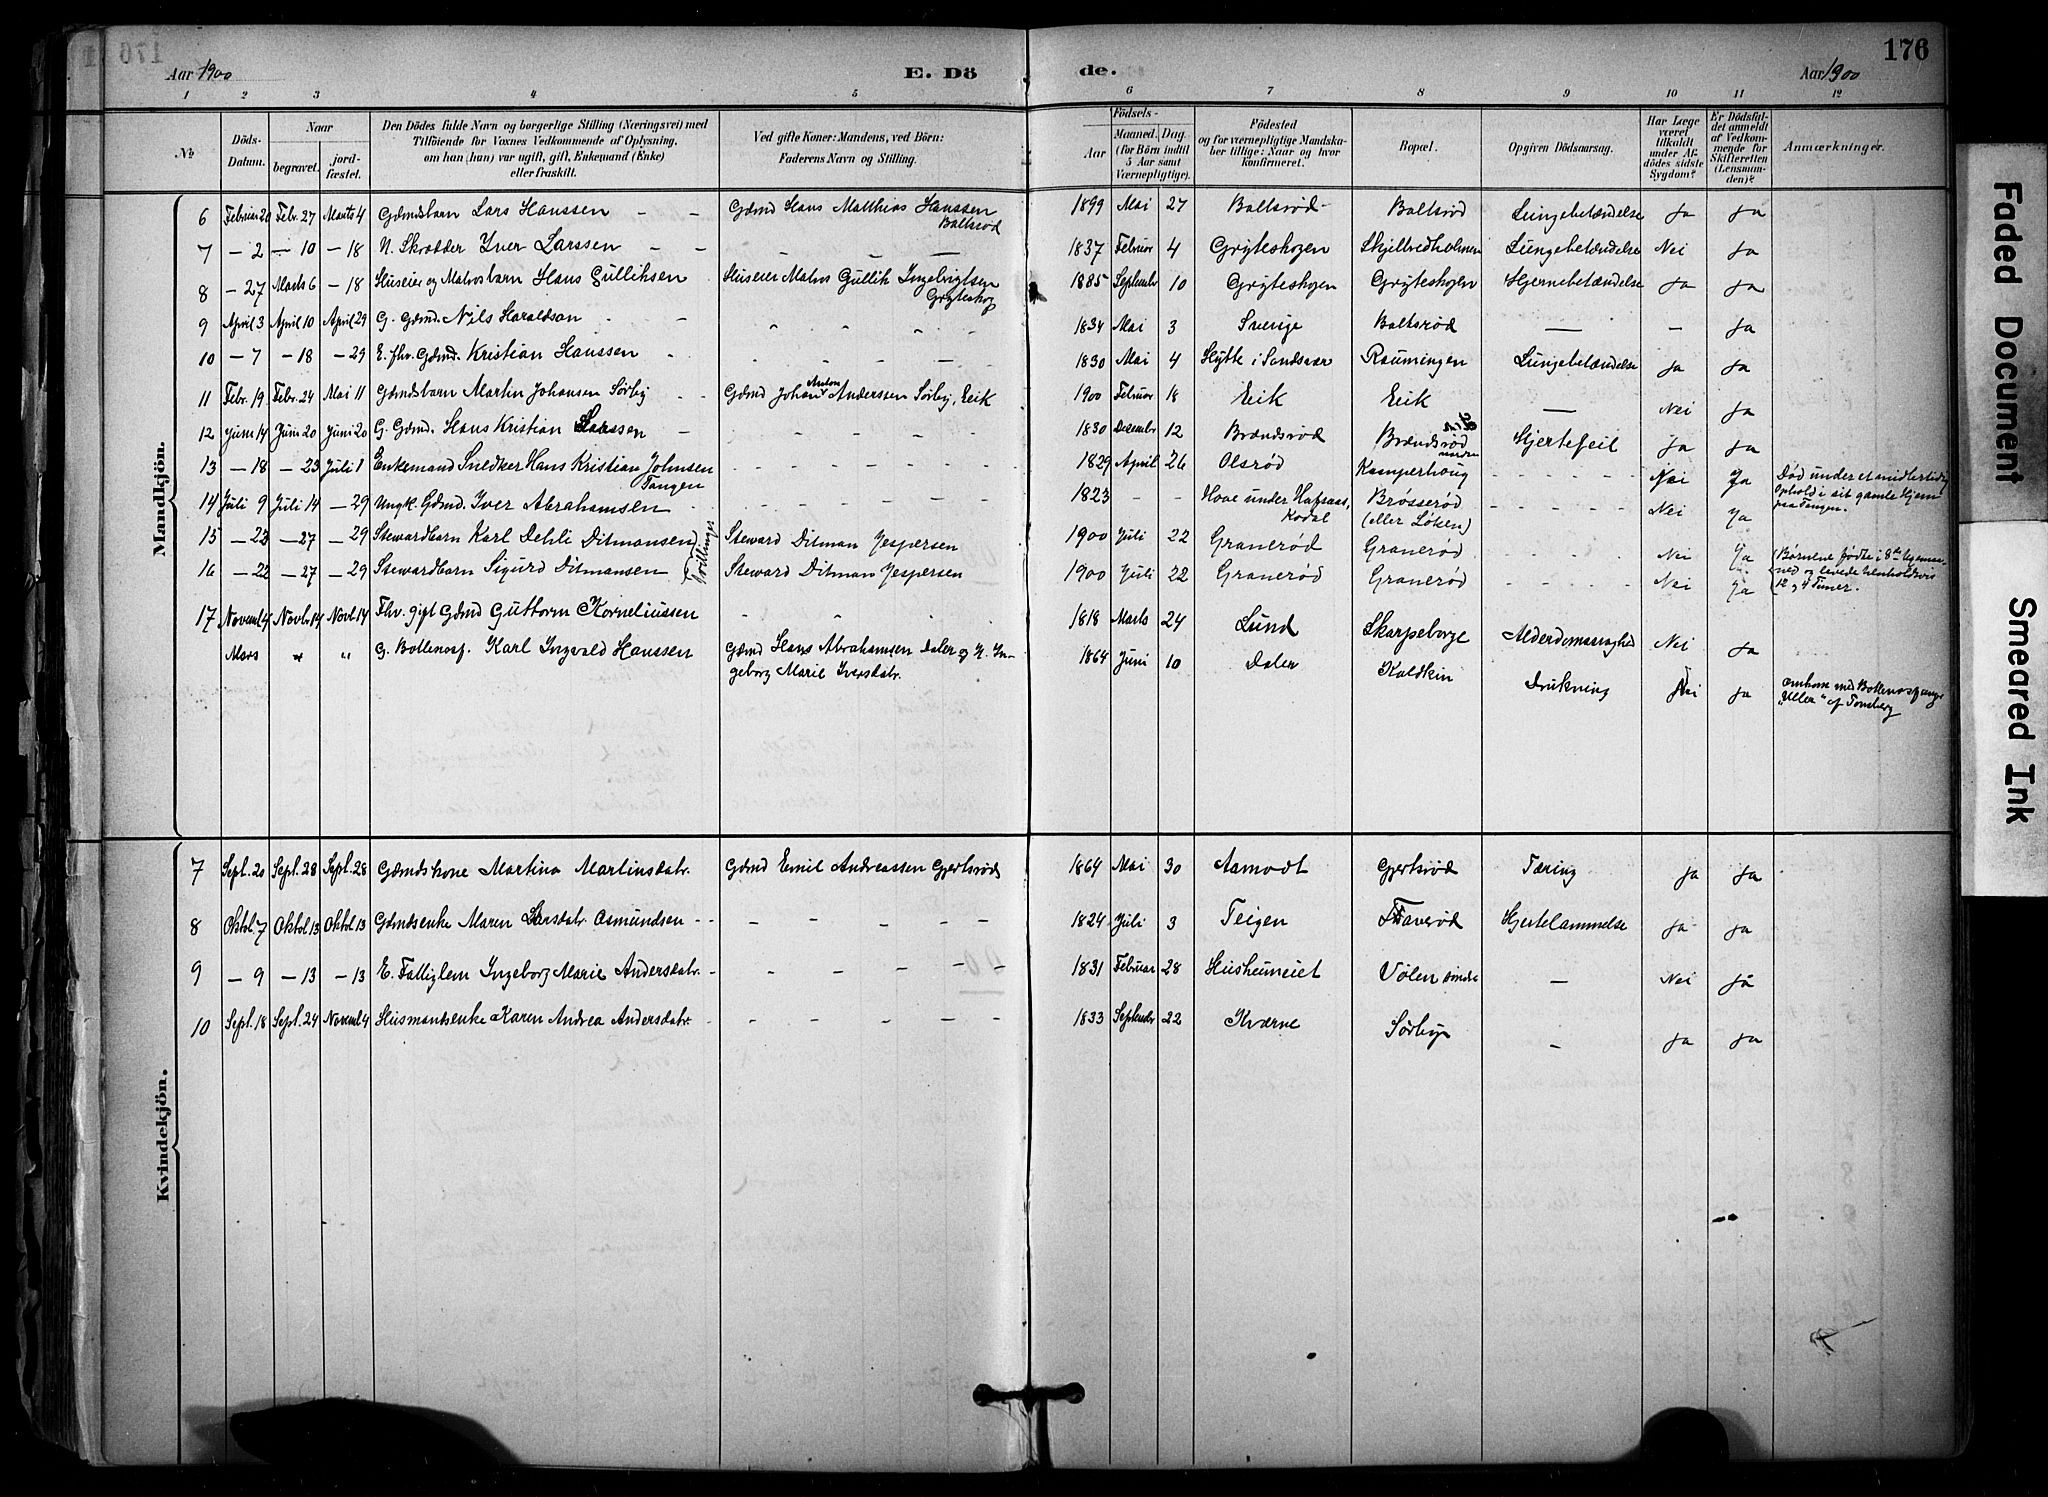 176
Aar 1900
E. Dö
de.
Aar 1900
1 2 3 4 5 6 7 8 9 10 11 12
№
Döds-
Datum.
Naar
begravet.
jord-
fæstet.
Den Dödes fulde Navn og borgerlige Stilling (Næringsvei) med
Tilföiende for Voxnes Vedkommende af Oplysning,
om han (hun) var ugift, gift, Enkemand (Enke)
eller fraskilt.
Ved gifte Koner: Mandens, ved Börn:
Faderens Navn og Stilling.
Födsels-
Aar
Maaned. Dag.
(for Börn indtil
5 Aar samt
Værnepligtige).
Födested
og for værnepligtige Mandska-
ber tillige: Naar og hvor
konfirmeret.
Bopæl.
Opgiven Dödsaarsag.
Har Læge
været
tilkaldt
under Af-
dödes sidste
Sygdom?
Er Dödsfal-
det anmeldt
af Vedkom-
mende for
Skifteretten
(Lensman-
den)?
Anmærkninger.
Mandkjön.
6 Februar 20 Febr. 27 Marts 4 Gdmdsbarn Lars Hanssen - - Gdmd Hans Matthias Hanssen 1899 Mai 27 Boltsrød Boltsrød Lungebetændelse Ja Ja
Boltsrød
7 - 2 - 10 - 18 N. Skrædder Iver Larssen - - - - 1837 Februar 4 Gryteskogen Skjelbredholmen Lungebetændelse Nei Ja
8 - 27 Marts 6 - 18 Huseier og Matrosbarn Hans Gulliksen Huseier Matros Gullik Ingebrigtsen 1885 September 10 Gryteskogen Gryteskogen Hjernebetændelse Ja Ja
Gryteskog
9 April 3 April 10 April 29 G. Gdmd. Nils Haraldson - - " " " 1834 Mai 3 Sverige Boltsrød — - Ja
10 - 7 - 18 - 29 E. fhv. Gdmd. Kristian Hanssen - - - - 1830 Mai 4 Hytte i Sandsvær Raumingen Lungebetændelse Ja Ja
11 Febr. 19 Febr. 24 Mai 11 Gdmdsbarn Martin Johansen Sørby - - Gdmd Johan Anton Anderssen Sørby, Eik 1900 Februar 18 Eik Eik — Nei Ja
12 Juni 14 Juni 20 Juni 20 G. Gdmd. Hans Kristian Larssen - - - - - 1830 Desember 12 Brændsrød Brændsrød Hjertefeil Ja Ja
13 - 18 - 23 Juli 1 Enkemand Snedker Hans Kristian Johnsen - - - - - 1829 April 26 Olsrød Kamperhoug - - - - Nei Ja Død under et midlertidig
Tangen
Ophold i sit gamle Hjem
paa Tangen.
14 Juli 9 Juli 14 - 29 Ungk. Gdmd. Iver Abrahamsen - - - - - 1823 - - Hoae under Hafsaas, Brøsserød - - - - Nei Ja
Kodal (eller Løken)
15 - 22 - 27 - 29 Stewardbarn Karl Dehli Ditmansen Steward Ditman Jespersen 1900 Juli 22 Granerød Granerød - - - - Nei Ja (Børnene fødte i 8de
Tvillinger
16 - 22 - 27 - 29 Stewardbarn Sigurd Ditmansen Steward Ditman Jespersen 1900 Juli 22 Granerød Granerød - - - - Nei Ja ned og levede henholdsvis
12 og 4 Timer.
17 Novemb 4 Novbr 14 Novbr 14 Fhv. gift Gdmd Guttorm Korneliussen - " - 1818 Marts 24 Lund Skorpeborge Alderdomssvaghed Nei Ja
Mars " " G. Bottenosf. Karl Ingvald Hanssen Gdmd Hans Abrahamsen Dalen og H. In- 1864 Juni 10 Dalen Koldkin Drukning Nei Ja omkom med Bottenosfanger
geborg Marie Iversdatr.
"Uller" af Tønsberg
Kvindekjön.
7 Sept. 20 Sept. 28 Sept. 28 Gdmdskone Martina Martinsdatr. Gdmd Emil Andreassen Gjertsrød 1864 Mai 30 Aamodt Gjertsrød Tæring Ja Ja
8 Oktbl 7 Oktbl 13 Oktbl 13 Gdmdsenke Maren Larsdatr. Osmundsen - - - - - - 1824 Juli 3 Teigen Traverød Hjertelammelse Ja Ja
9 - 9 - 13 - 13 E. Fattiglem Ingeborg Marie Andersdatr. - - - - - - 1831 Februar 28 Husheimeiet Vølen søndre — Nei Ja
10 Sept. 18 Sept. 24 Novemb 4 Husmandsenke Karen Andrea Andersdatr. - - - - - - 1833 September 22 Kværne Sørby — Ja Ja
Faded Document
Smeared Ink